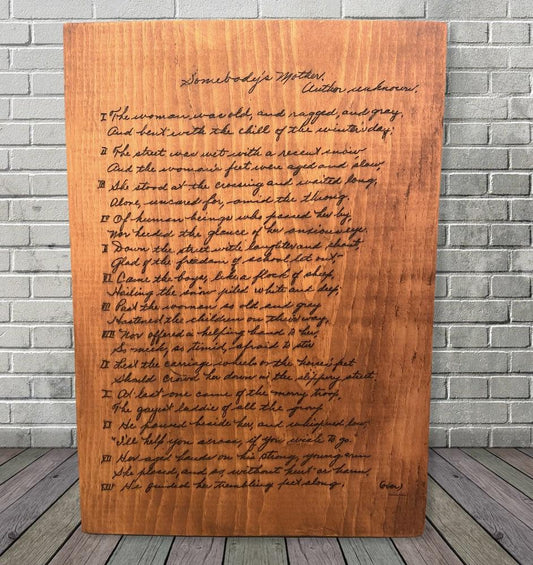 Somebody's Mother.
Author unknown.
I The woman was old, and ragged, and gray,
And bent with the chill of the winter day;
II The street was wet with a recent snow
And the woman's feet were aged and slow,
III She stood at the crossing and waited long,
Alone, uncared for, amid the throng,
IV Of human beings who passed her by,
Nor heeded the glance of her anxious eye.
V Down the street with laughter and shout,
Glad of the freedom of school let out,
VI Came the boys, like a flock of sheep,
Hailing the snow piled white and deep;
VII Past the woman so old and gray
Hastened the children on their way,
VIII Nor offered a helping hand to her,
So meek, so timid, afraid to stir
IX Lest the carriage wheels or the horses' feet
Should crowd her down in the slippery street,
X At last one came of the merry troop,
The gayest laddie of all the group
XI He paused beside her, and whispered low,
"I'll help you across, if you wish to go."
XII Her aged hands on his strong, young arm
She placed, and so, without hurt or harm,
XIII He guided her trembling feet along,
(over)